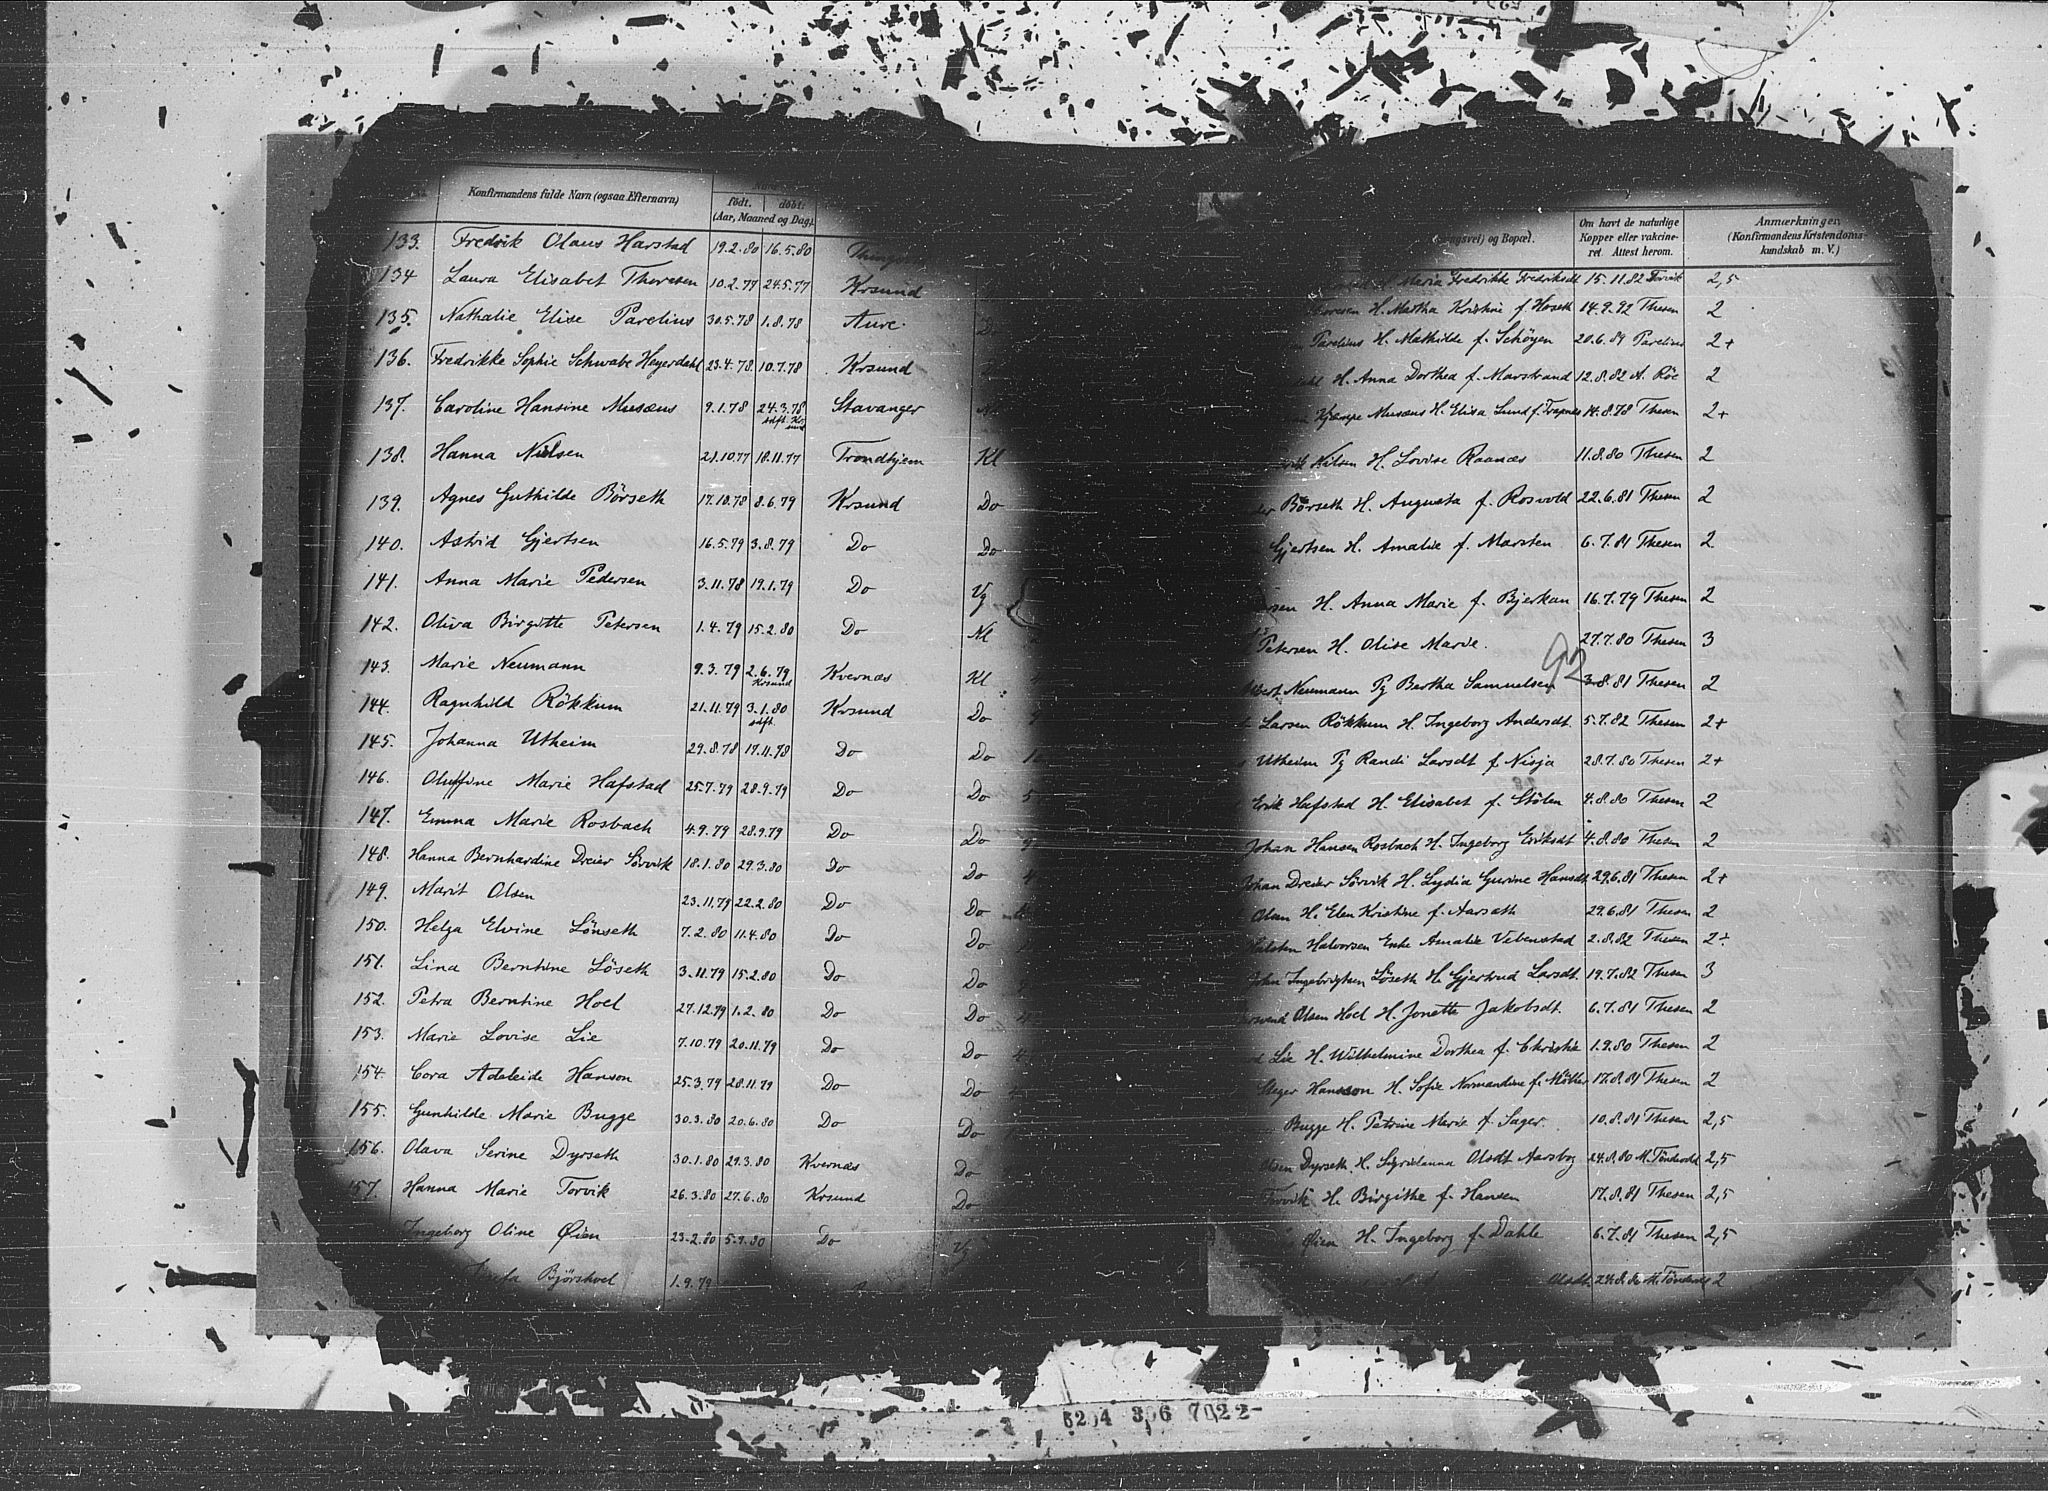 Konfirmandens fulde Navn (ogsaa Efternavn) født. døbt.
(Aar, Maaned og Dag).
133. Fredrik Olaus Harstad 19.2.80 16.5.80
134 Laura Elisabet Thoresen 10.2.77 24.5.77 Krsund
135. Nathalie Elise Parelius 30.5.78 1.8.78 Aure.
136. Fredrikke Sophie Schwabe Heyerdahl 23.4.78 10.7.78 Krsund
137. Caroline Hansine Musæus 9.1.78 24.3.78 Stavanger
138. Hanna Nilsen 21.10.77 18.11.77 Trondhjem Kl
139. Agnes Guthilde Börseth 17.10.78 8.6.79 Krsund Do
140. Astrid Gjertsen 16.5.79 3.8.79 Do Do
141. Anna Marie Pedersen 3.11.78 19.1.79 Do Vg
142. Oliva Birgitte Petersen 1.4.79 15.2.80 Do Nl
143. Marie Neumann 9.3.79 2.6.79 Krsund Kvernæs Kl
144. Ragnhild Rökkum 21.11.79 3.1.80 Krsund Do
145. Johanna Utheim 29.8.78 19.11.78 Do Do
146. Oluffine Marie Hafstad 25.7.79 28.9.79 Do Do 5
147. Emma Marie Rosbach 4.9.79 28.9.79 Do Do
148. Hanna Bernhardine Dreier Sörvik 18.1.80 29.3.80 Do Do 4
149. Marit Olsen 23.11.79 22.2.80 Do Do
150. Helga Elvine Lönseth 7.2.80 11.4.80 Do Do
151. Lina Berntine Löseth 3.11.79 15.2.80 Do Do
152. Petra Berntine Hoel 27.12.79 1.2.80 Do Do
153. Marie Lovise Lie 7.10.79 20.11.79 Do Do 4
154. Cora Adeleide Hanson 25.3.79 28.11.79 Do Do
155. Gunhilde Marie Bugge 30.3.80 20.6.80 Do Do
156. Olava Serine Dyrseth 30.1.80 29.3.80 Kvernæs Do
157. Hanna Marie Torvik 26.3.80 27.6.80 Krsund Do
Ingeborg Oline Øien 23.2.80 5.9.80 Do Vg
Bjørshol 1.9.79
og Bopæl. Om havt de naturlige Kopper eller vakcineret. Attest herom. Anmærkninger (Konfirmandens Kristendomskundskab m. V.)
H. Maria Fredrikke Fredriksdt 15.11.82 Torvik 2,5
Toresen H. Martha Kristine f. Hoseth 14.9.92 Thesen 2
Parelius H. Mathilde f. Schöyen 20.6.89 Parelius 2+
H. Anna Dorthea f. Marstrand 12.8.82 A. Röe 2
Kjempe Musæus H. Elisa Lund f. Trapnes 14.8.78 Thesen 2+
Nilsen H. Lovise Raanæs 11.8.80 Thesen 2
Börseth H. Augusta f. Rosvold 22.6.81 Thesen 2
Gjertsen H. Amalie f. Marsten 6.7.81 Thesen 2
H. Anna Marie f. Bjerkan 16.7.79 Thesen 2
Petersen H. Olise Marie. 27.7.80 Thesen 3
92
Neumann Pg Bertha Samuelsen 3.8.81 Thesen 2
Larsen Rökkum H. Ingeborg Andersdt. 5.7.82 Thesen 2+
Utheim Pg Randi Larsdt f. Nisja 28.7.80 Thesen 2+
Erik Hafstad H. Elisabet f. Stölen 4.8.80 Thesen 2
Johan Hansen Rosbach H. Ingeborg Eriksdt 4.8.80 Thesen 2
Johan Dreier Sörvik H. Lydia Gurine Hansdt 29.6.81 Thesen 2+
Olsen H. Elen Kristine f. Aarsæth 29.6.81 Thesen 2
Halvorsen Enke Amalie Vebenstad 2.8.82 Thesen 2÷
John Ingebrigtsen Löseth H. Gjertrud Larsdt. 19.7.82 Thesen 3
Olsen Hoel H. Jonette Jakobsdt. 6.7.81 Thesen 2
Lie H. Wilhelmine Dorthea f. Christie 1.9.80 Thesen 2
Hansson H. Sofie Normandine f. Möller 17.8.81 Thesen 2
Bugge H. Petrine Marie f. Sager. 10.8.81 Thesen 2,5
Olsen Dyrseth H. Olsdt Aarsbog 24.8.80 M. Tönderdal 2,5
Torvik H. Birgithe f. Hansen 17.8.81 Thesen 2,5
Øien H. Ingeborg f. Dahle 6.7.81 Thesen 2,5
Olsdt. 24.8.80 M. Tönderdal 2
5204 306 7022-